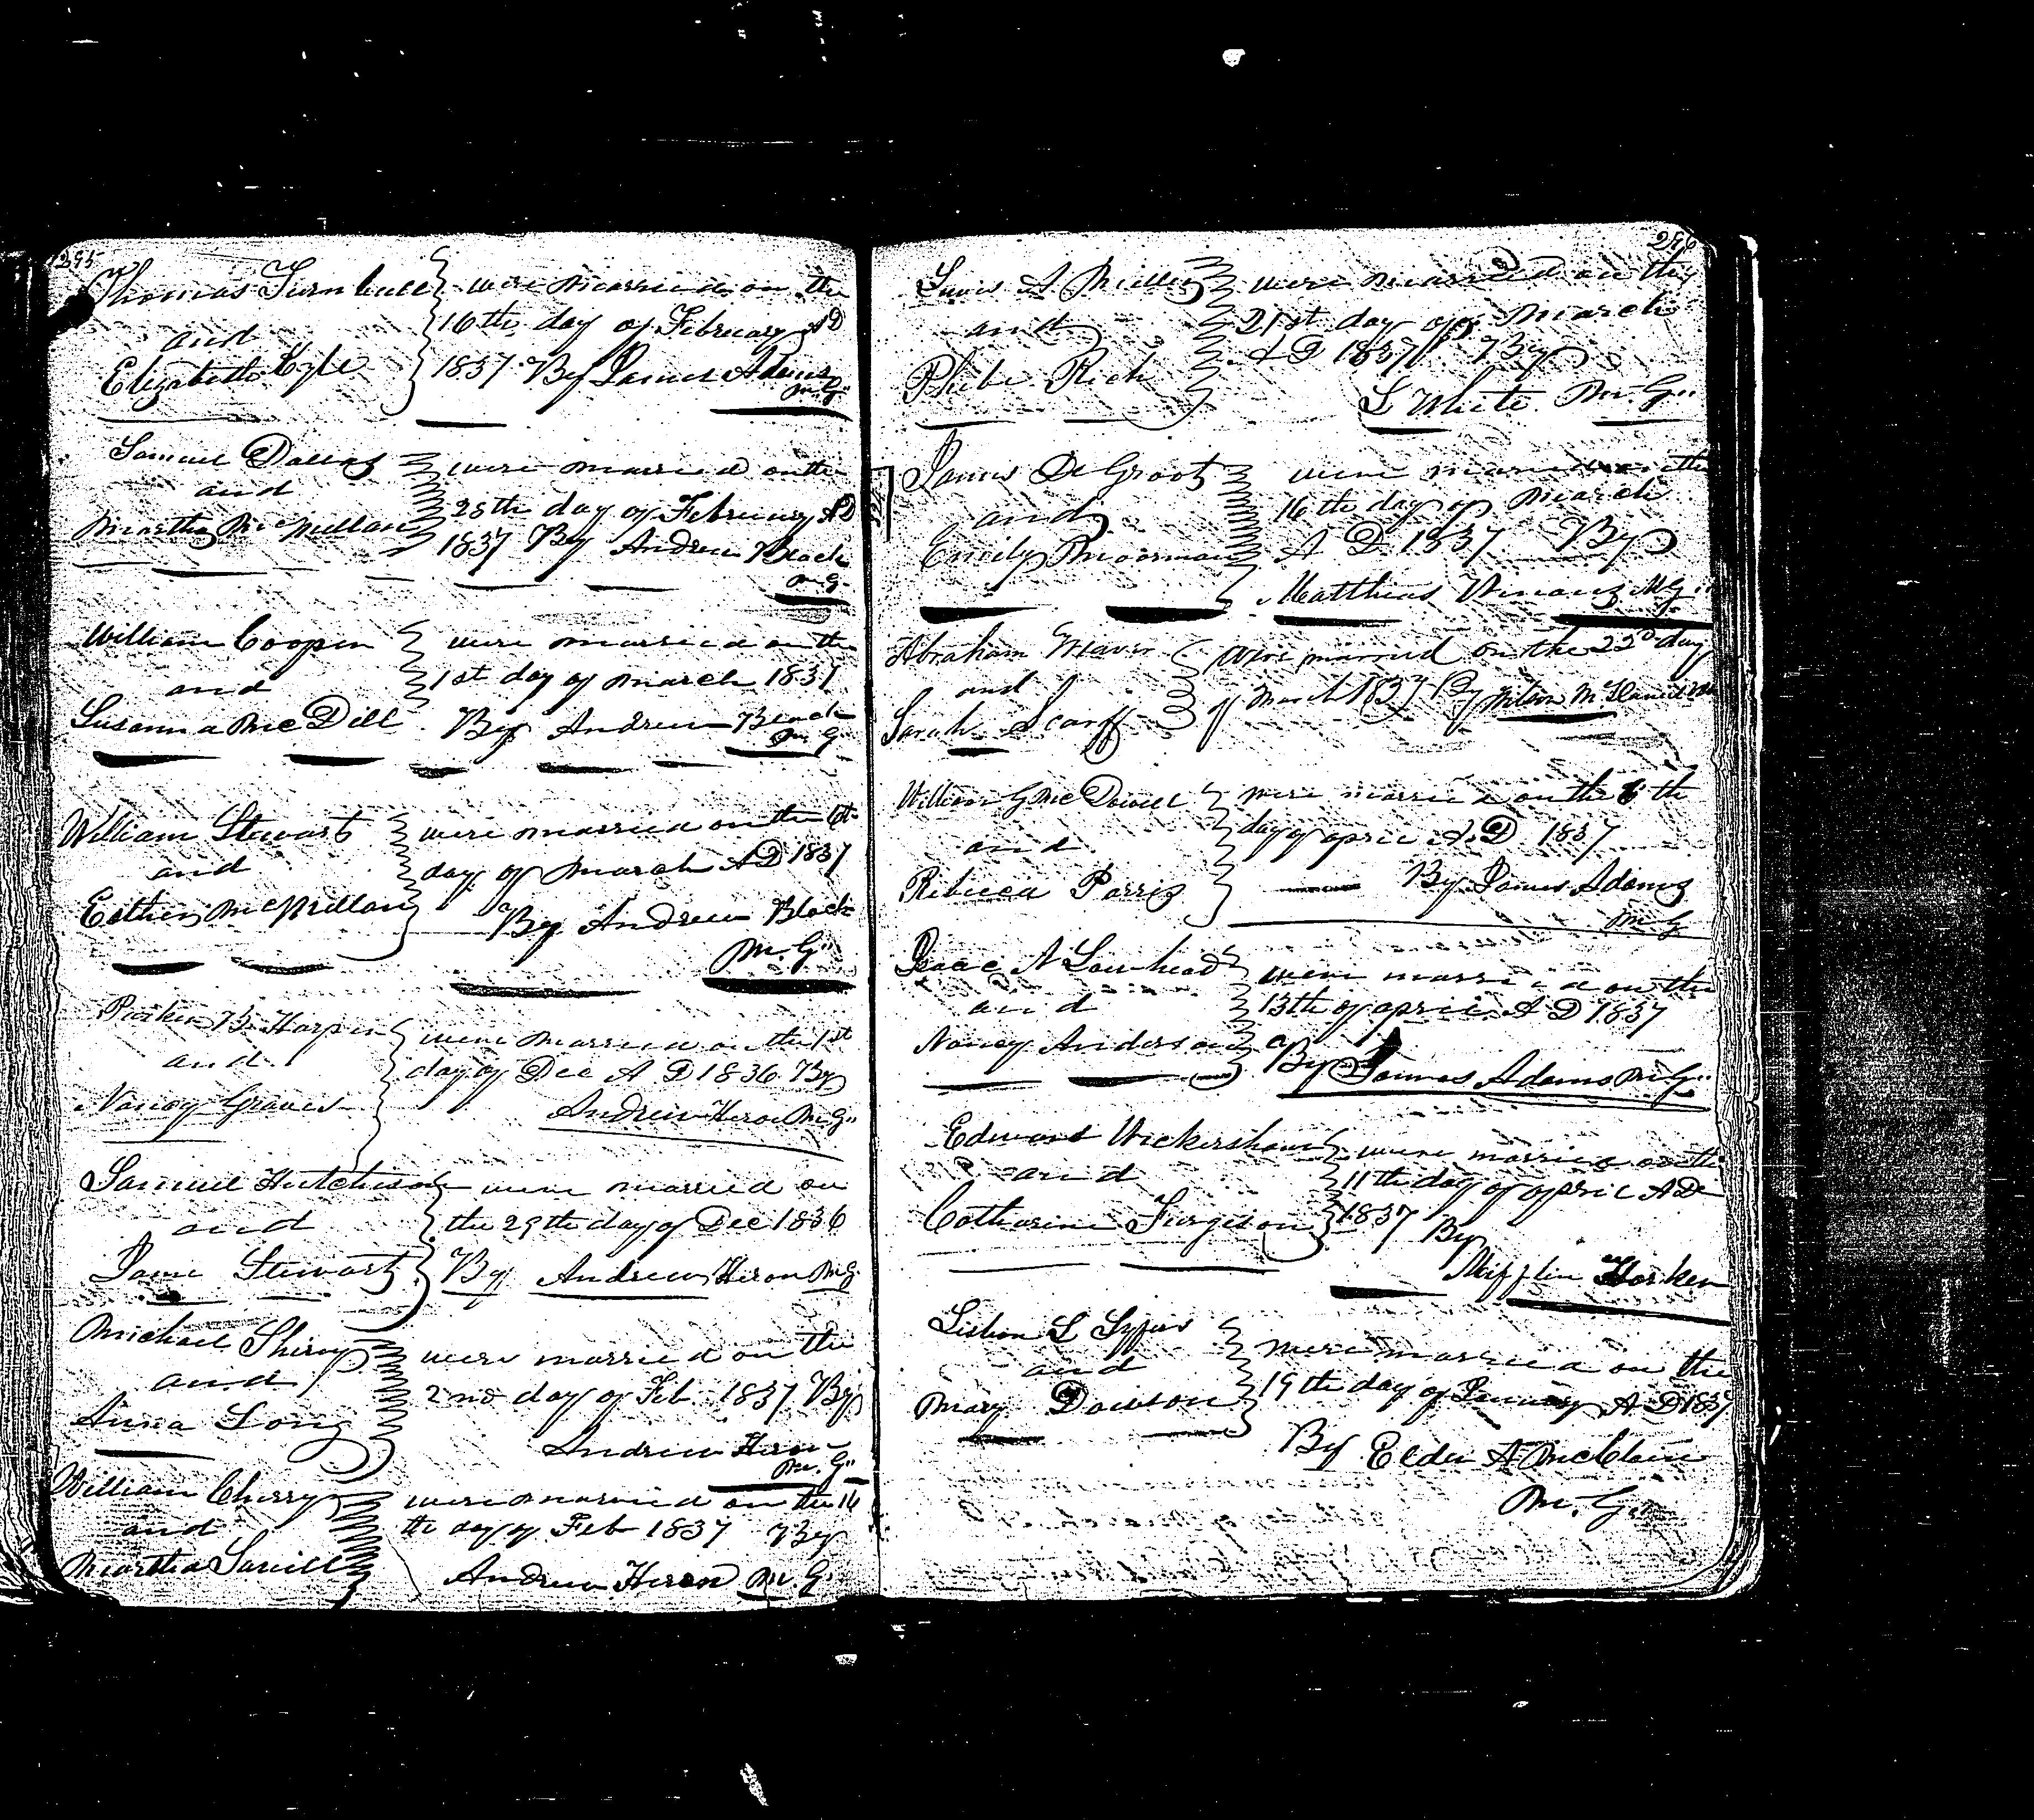 295
Thomas Turnbull were married on the
and 16th day of February AD
Elizabeth Kyle 1837 By James Adams
M.G.
Samuel Dallas were married on the
and 28th day of February AD
Martha McMillan 1837 By Andrew Black
M.G.
William Cooper were married on the
and 1st day of March 1837
Susanna McDill By Andrew Black
M.G.
William Stewart were married on the 1st
and day of March AD 1837
Esther McMillan By Andrew Black
M.G.
B. Harper were married on the 1st
and day of Dec A D 1836 By
Nancy Graves Andrew Heron M.G.
Samuel Hutchison were married on
and the 29th day of Dec 1836
Jane Stewart By Andrew Heron M.G.
Michael Shirey were married on the
and 2nd day of Feb 1837 By
Anna Long Andrew Heron
M.G.
William Cherry were married on the 16
and th day of Feb 1837 By
Martha Andrew Heron M.G.
296
A Miller were married on the
and 21st day of March
Phebe Rich A D 1837 By
L White M.G.
James DeGroot were married on the
and 16th day of March
Emily Moorman A D 1837 By
Matthias Winans M.G.
Abraham Weaver were married on the 22d day
and of March 1837 By
Sarah Scarff
William G McDowell were married on the 6th
and day of April A.D 1837
Rebecca By James Adams
M.G
Isaac N Lawhead were married on the
and 13th of April A D 1837
Nancy Anderson By James Adams M.G.
Edward Wickersham were married on the
and 11th day of April AD
Catharine Furgison 1837 By
Mifflin Harker
L were married on the
and 19th day of January A D 1837
Mary Dawson
By Elder A McClain
M.G.